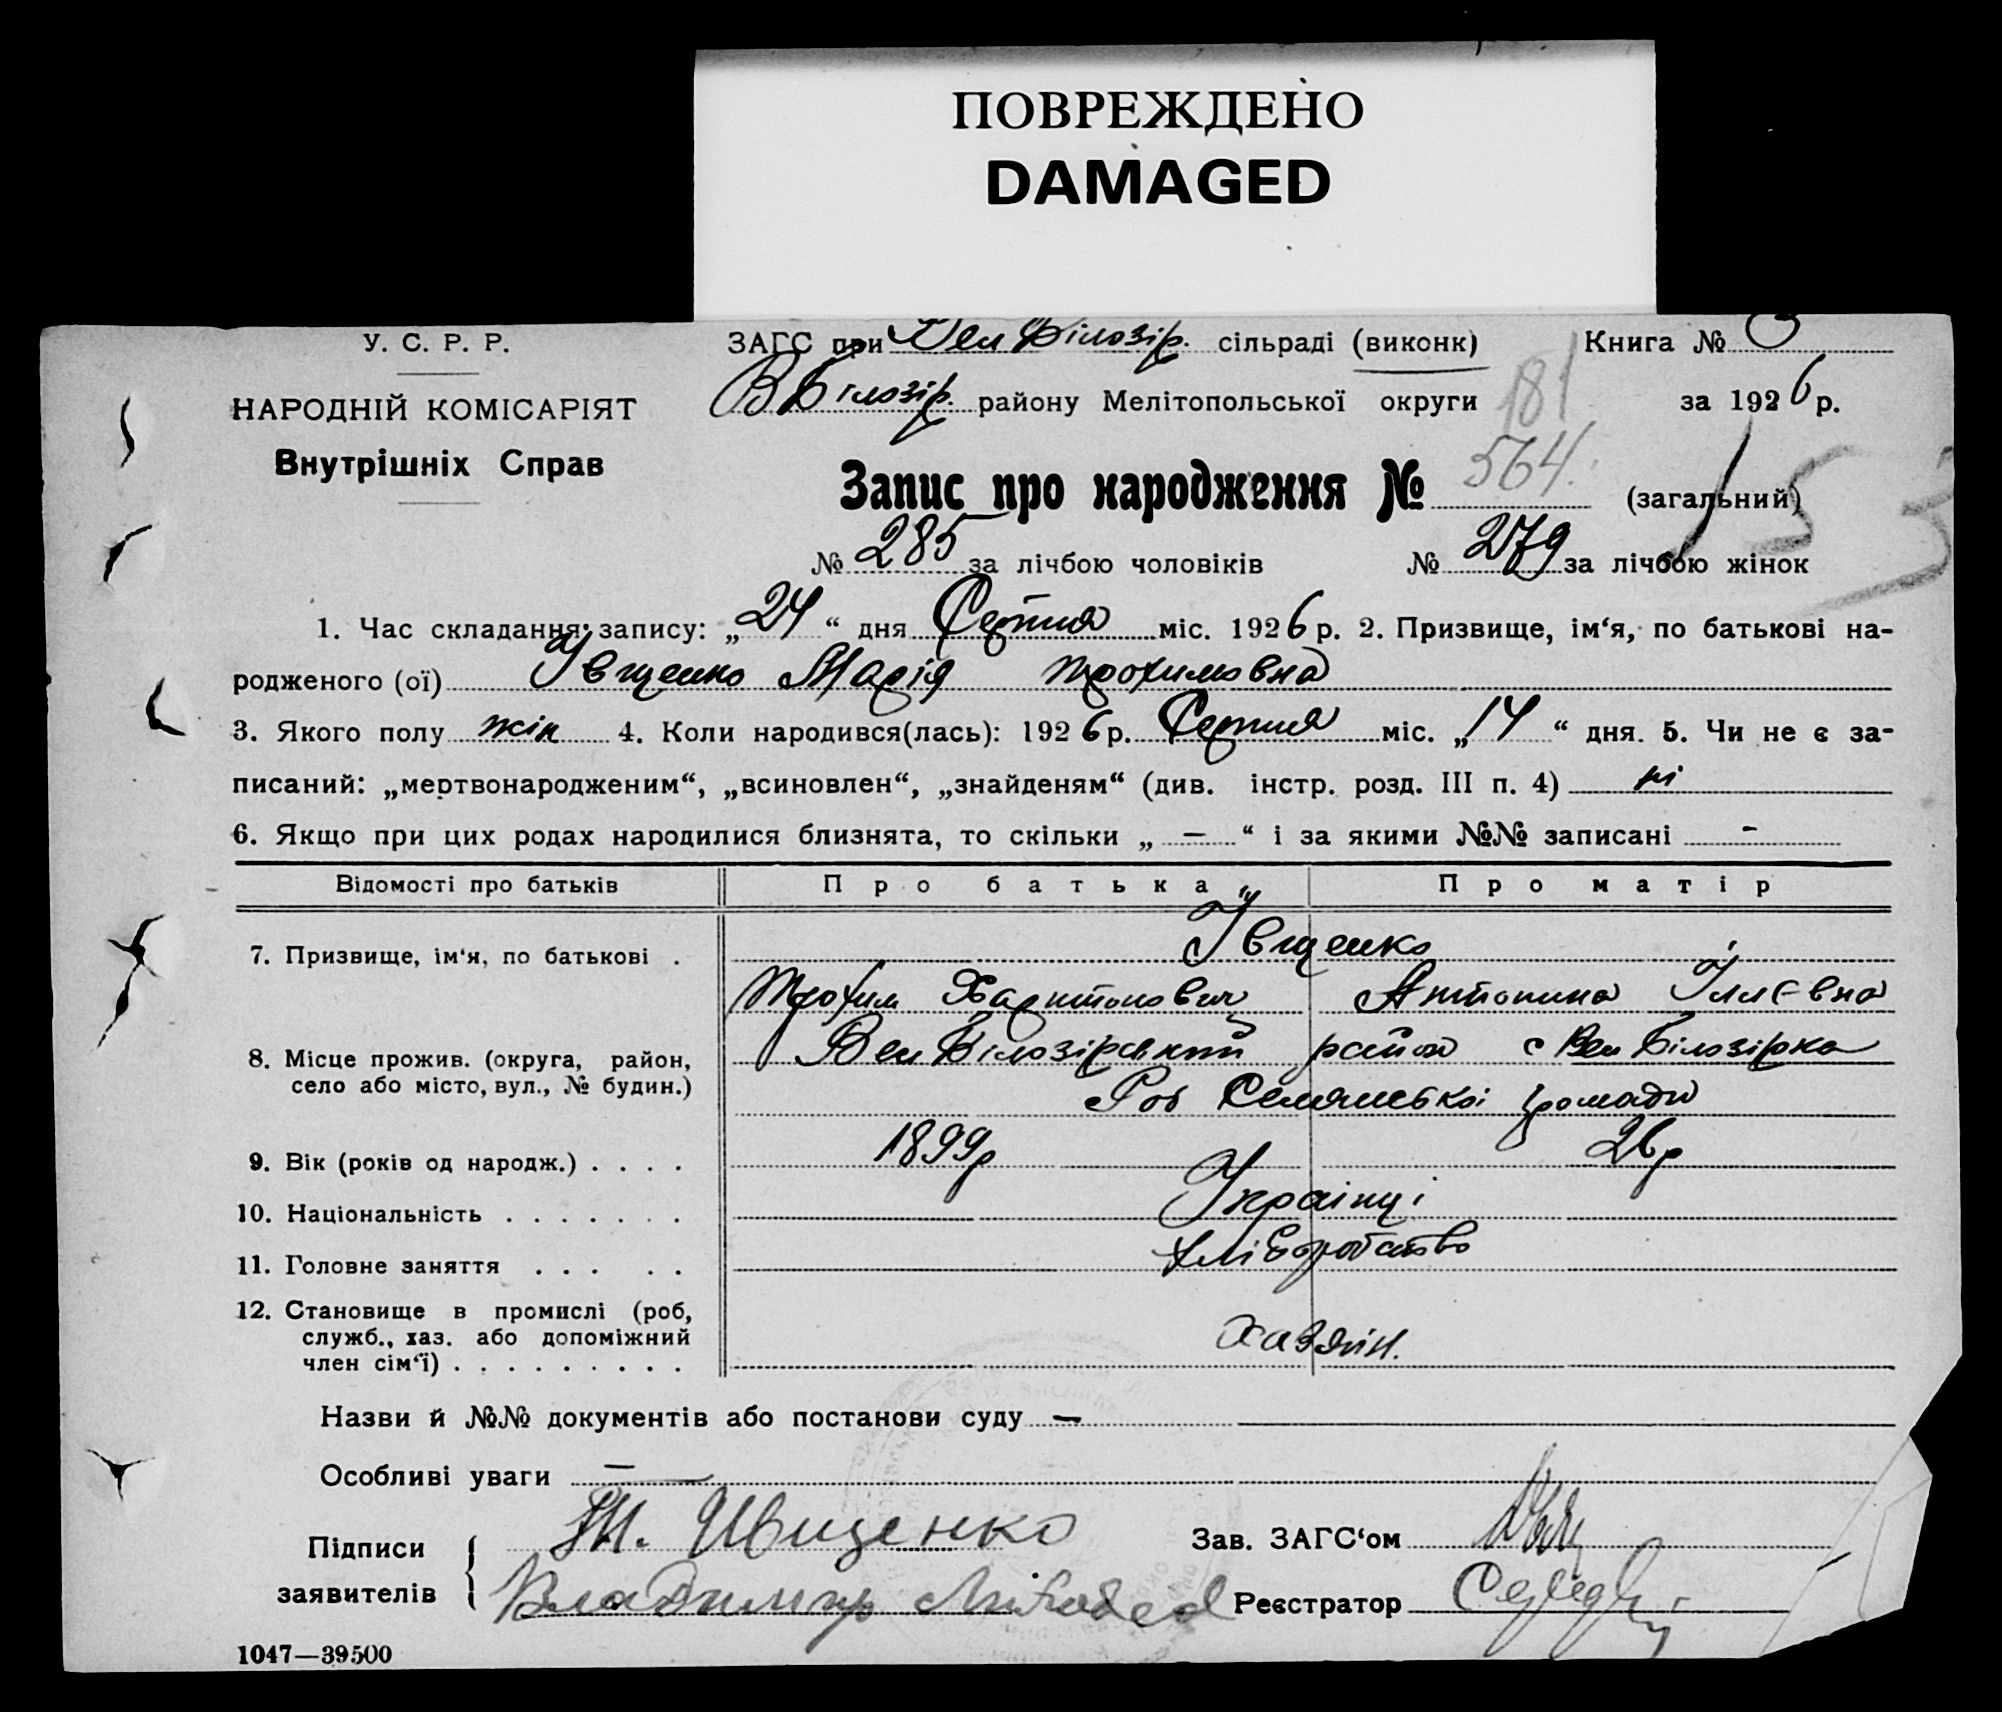 ПОВРЕЖДЕНО
DAMAGED
У. С. Р. Р.
ЗАГС при Вел Білозір. сільраді (виконк)
Книга №
НАРОДНІЙ КОМІСАРІЯТ
ВБілозір. району Мелітопольської округи
181
за 1926 р.
Внутрішніх Справ
Запис про народження № 564. (загальний)
153
№ 285 за лічбою чоловіків № 279 за лічбою жінок
1. Час складання запису: „24“ дня Серпня міс. 1926 р. 2. Призвище, ім‘я, по батькові на-
родженого (ої) Івщенко Марія Трохимовна
3. Якого полу жін 4. Коли народився(лась): 1926 р. Серпня міс. „14“ дня. 5. Чи не є за-
писаний: „мертвонародженим“, „всиновлен“, „знайденям“ (див. інстр. розд. III п. 4) ні
6. Якщо при цих родах народилися близнята, то скільки „ — “ і за якими №№ записані -
Відомості про батьків Про батька Про матір
7. Призвище, ім‘я, по батькові . Івщенко
Трохим Харитонович Антонина Іллєвна
8. Місце прожив. (округа, район, Вел Білозірський район с Вел Білозірка
село або місто, вул., № будин.) Роб Селянської громади
9. Вік (років од народж.) . . . . 1899р 26р
10. Національність . . . . . . . Українці
11. Головне заняття . . . . . хліборобство
12. Становище в промислі (роб,
служб., хаз. або допоміжний хазяїн.
член сім‘ї) . . . . . . . . .
Назви й №№ документів або постанови суду —
Особливі уваги —
Підписи Т. Ивщенко Зав. ЗАГС‘ом
заявителів Владимир Реєстратор
1047—39500